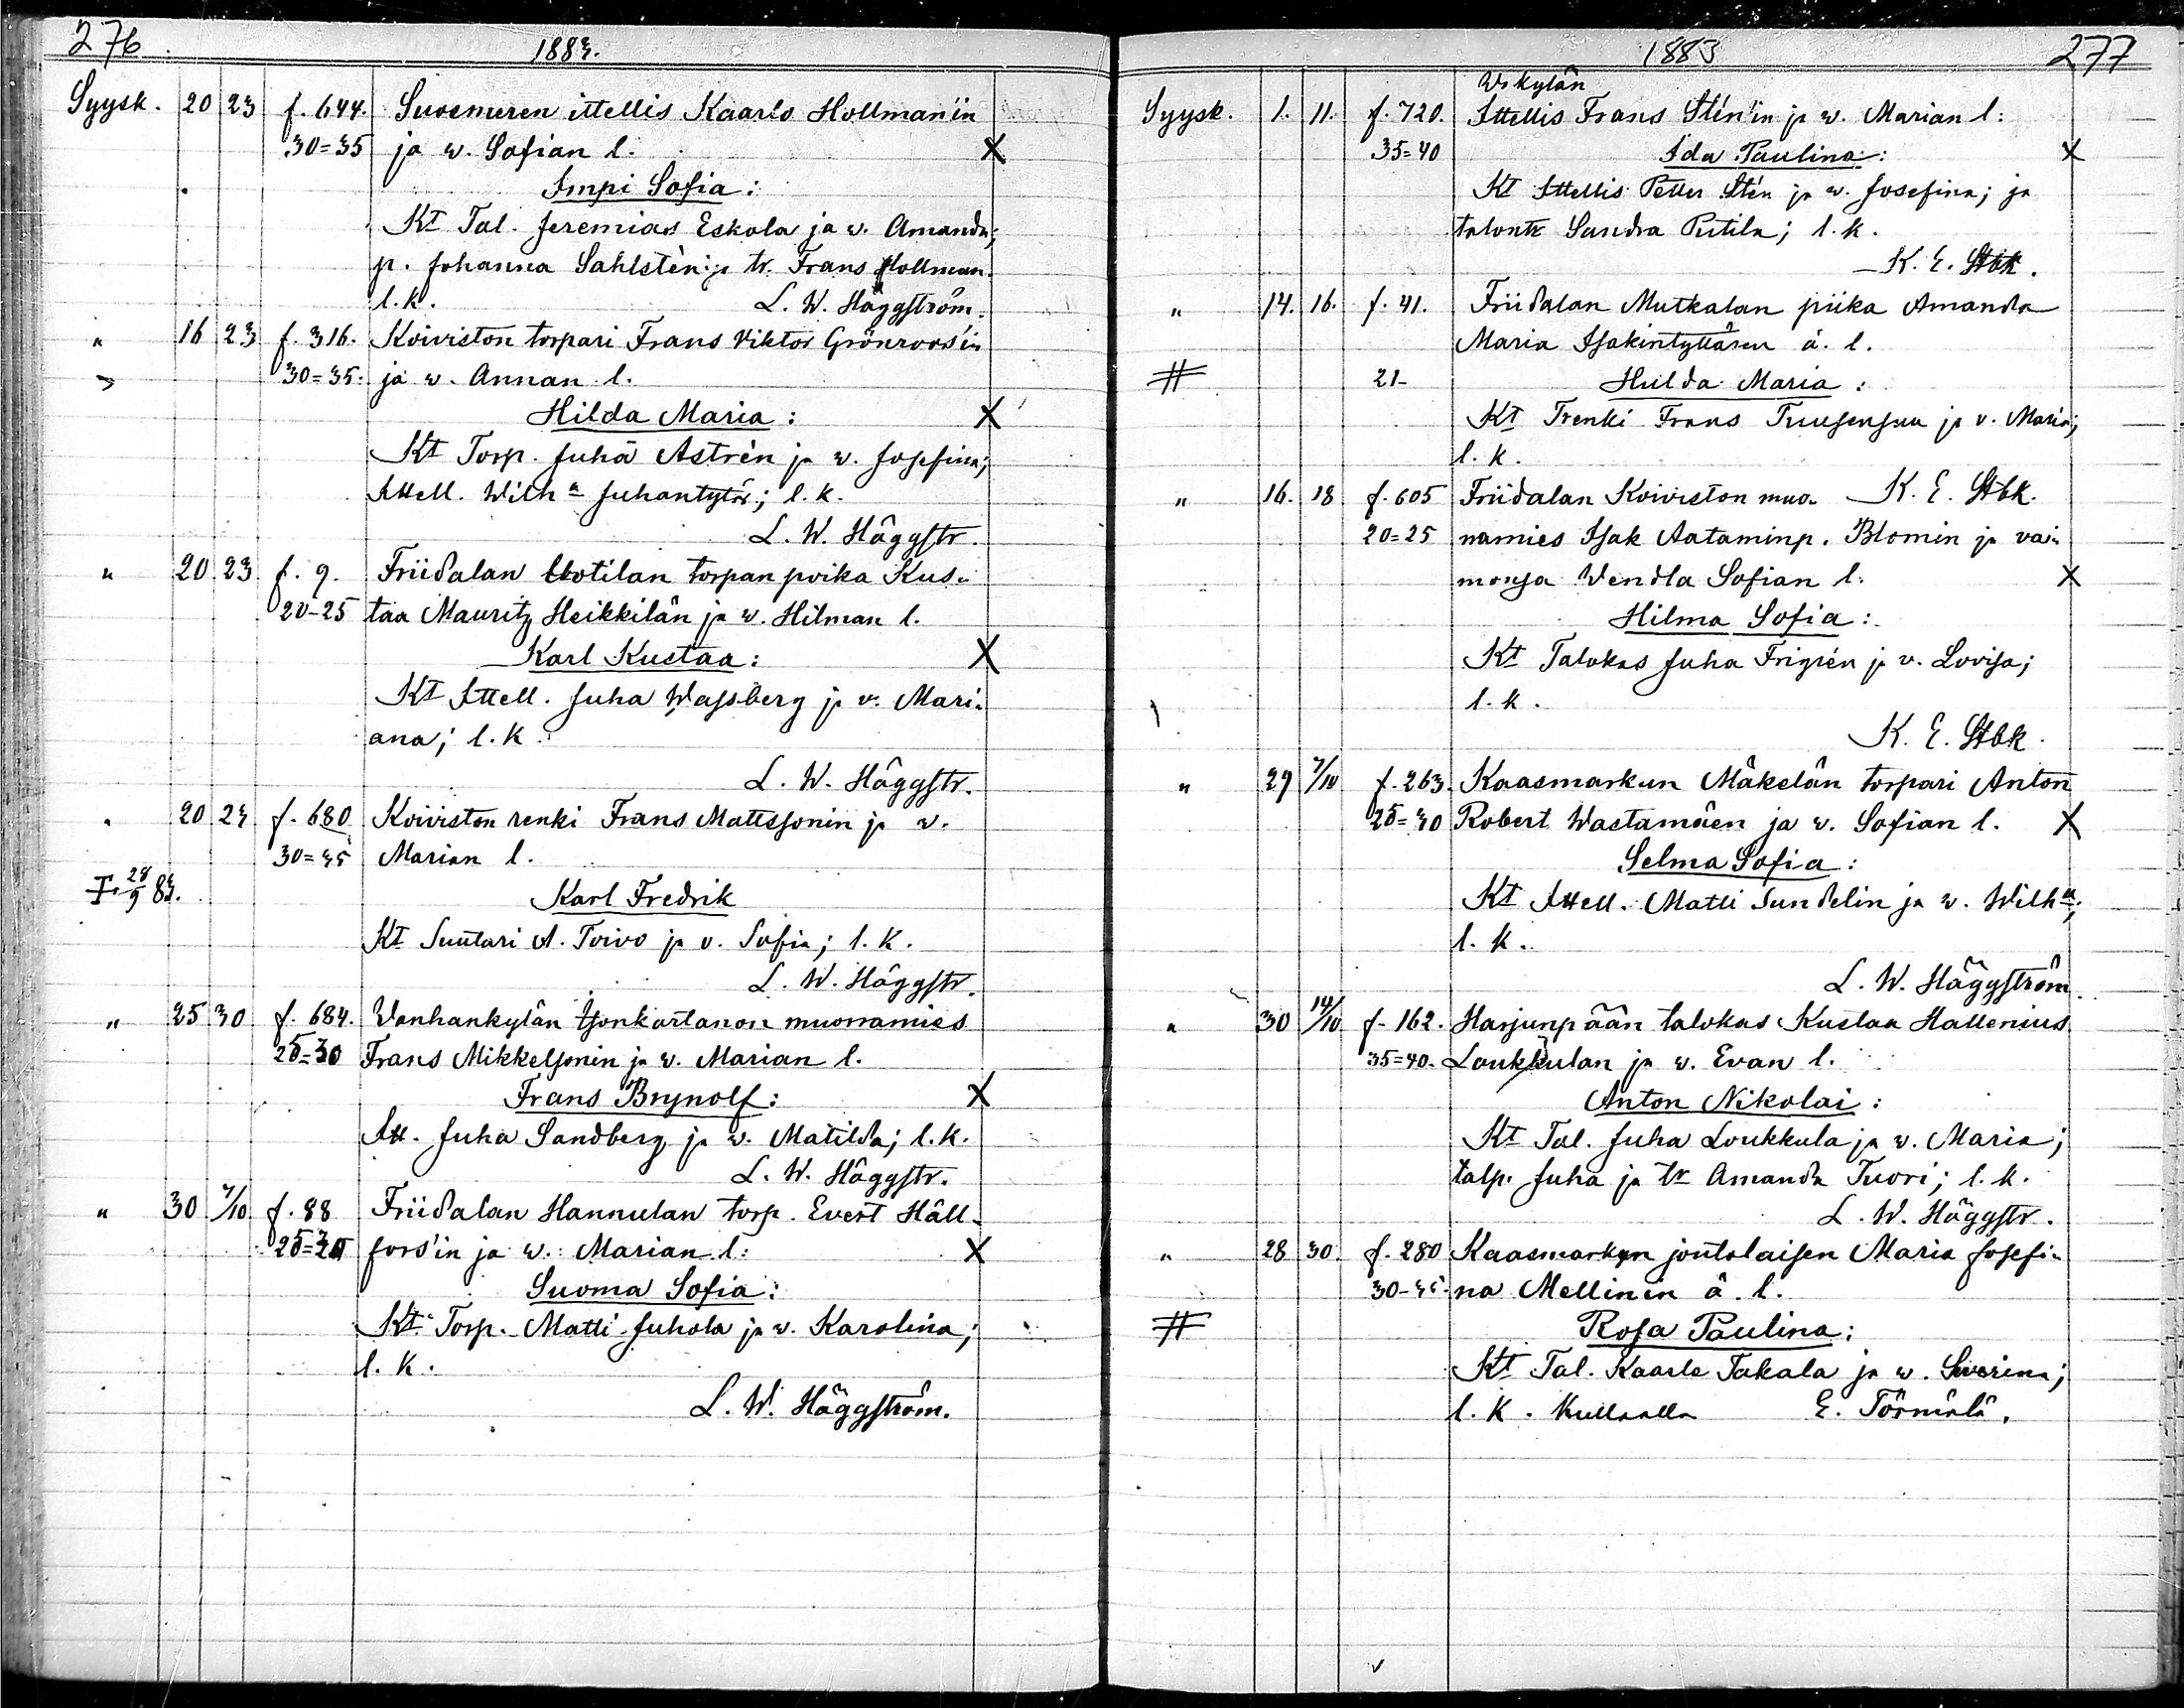 276.
1883.
Syysk. 20 23 f. 644. Suosmeren ittellis Kaarlo Hollman'in
30=35 ja w. Sofian l. X
Impi Sofia:
Kt Tal. Jeremias Eskola ja w. Amanda;
p. Johanna Sahlstèn ja tr. Frans Hollman.
l.k. L. W. Häggström.
" 16 23 f. 316. Koiviston torpari Frans Viktor Grönroos'in
30=35. ja w. Annan l.
Hilda Maria: X
Kt Torp. Juhà Astrèn ja w. Josefina;
Ittell. Wilhª Juhantytär; l.k.
L. W. Häggstr.
" 20 23 f. 9. Friidalan Uotilan torpan poika Kus-
20-25 taa Mauritz Heikkilän ja w. Hilman l.
Karl Kustaa: X
Kt Ittell. Juha Wassberg ja v. Mari-
ana; l.k.
L. W. Häggstr.
" 20 23 f. 680 Koiviston renki Frans Mattssonin ja w.
30=35 Marian l.
28/9 83. Karl Fredrik
Kt Suutari A. Toivo ja v. Sofia; l.k.
L. W. Häggstr.
" 25 30 f. 684. Vanhankylän Isonkartanon muonamies
25=30 Frans Mikkelsonin ja w. Marian l.
Frans Brynolf: X
Itt. Juha Sandberg ja w. Matilda; l.k.
L. W. Häggstr.
" 30 7/10 f. 88 Friidalan Hannulan torp. Evert Häll-
fors'in ja w. Marian l: X
Suoma Sofia:
Kt Torp. Matti Juhola ja w. Karolina;
l.k.
L. W. Häggström.
1883
277
W:kylän
Syysk. 1. 11. f. 720. Ittellis Frans Stén'in ja w. Marian l:
35=40 Ida Paulina: X
Kt Ittellis Petter Stén ja w. Josefina; ja
Sandra Putila; l.k.
K. E. Stbk.
" 14. 16. f. 41. Friidalan Mutkalan piika Amanda
Maria Isakintyttären ä. l.
# 21- Hulda Maria:
Kt Trenki Frans Tuusensuu ja v. Maria;
l.k.
" 16. 18 f. 605 Friidalan Koiviston muo- K. E. Stbk.
20=25 namies Isak Aataminp. Blomin ja vai-
monsa Vendla Sofian l. X
Hilma Sofia:
Kt Talokas Juha Frigrén ja v. Lovisa;
l.k.
K. E. Stbk.
" 29 7/10 f. 263. Kaasmarkun Mäkelän torpari Anton
25=30 Robert Wastamäen ja w. Sofian l. X
Selma Sofia:
Kt Ittell. Matti Sundelin ja w. Wilhª;
l.k.
L. W. Häggström.
" 30 14/10 f. 162. Harjunpään talokas Kustaa Hallenius
35=40. Loukkulan ja w. Evan l.
Anton Nikolai:
Kt Tal. Juha Loukkula ja w. Maria;
talp. Juha ja tr Amanda Tuori; l.k.
L. W. Häggstr.
" 28 30. f. 280 Kaasmarkun joutolaisen Maria Josefi-
30-35. na Mellinin ä. l.
# Rosa Paulina:
Kt Tal. Kaarle Takala ja w. Severina;
l.k. Kullaalla E. Törnälä.